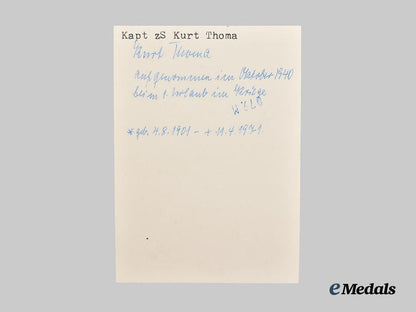 Kapt zS Kurt Thoma
Kurt Thoma
aufgenommen im Oktober 1940
beim 1. Urlaub im Kriege
* geb. 4.8.1901 - + 11.4.1971.
eMedals